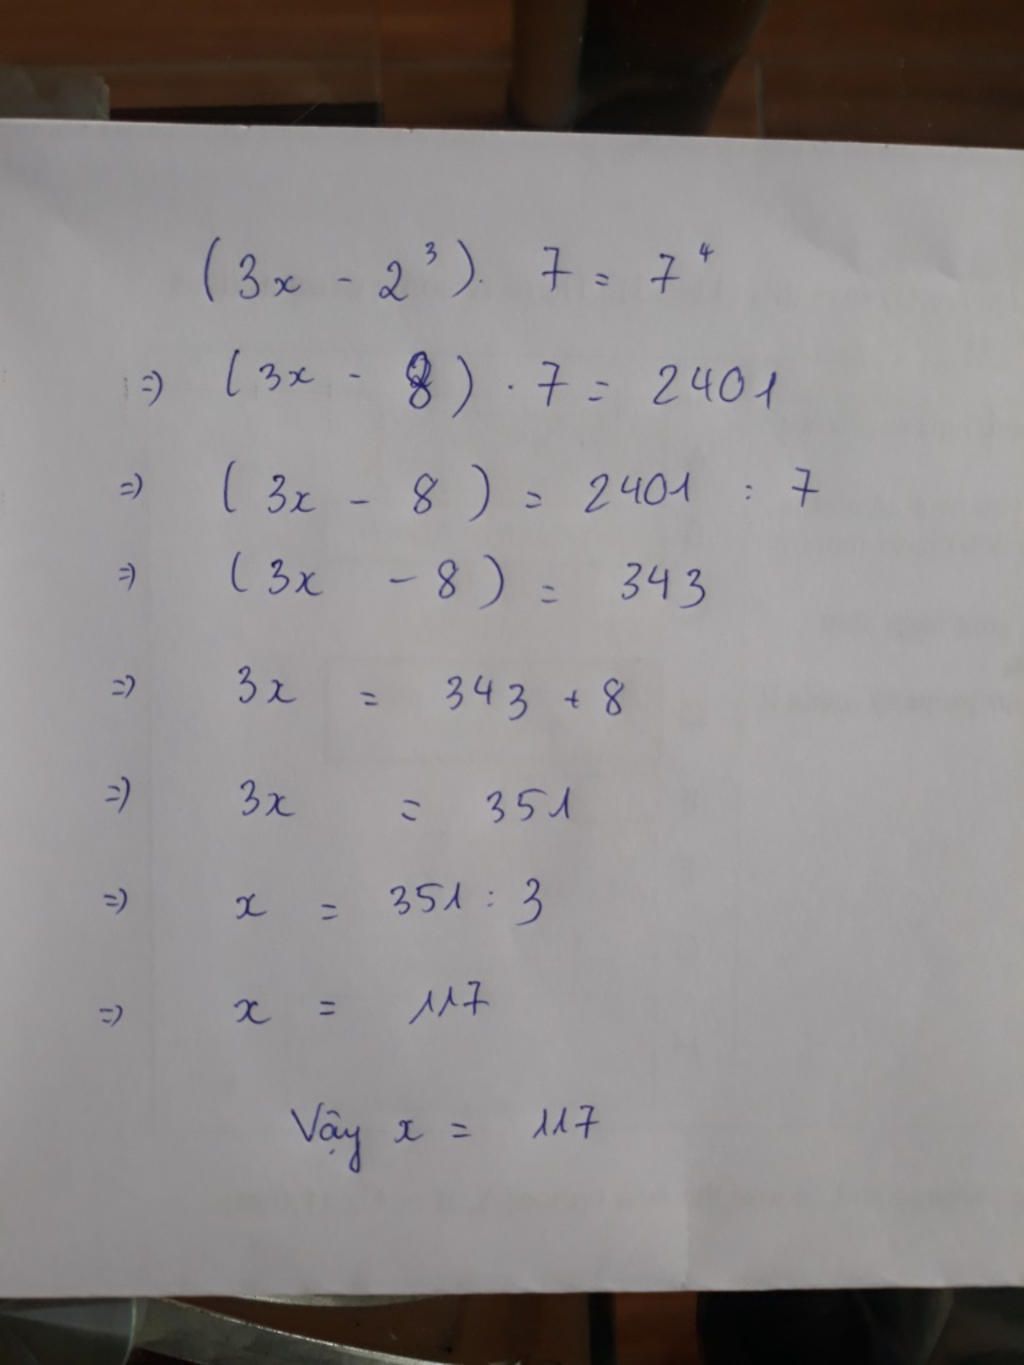 (3x - 2³). 7 = 7⁴
=) (3x - 8) . 7 = 2401
=) (3x - 8) = 2401 : 7
=) (3x - 8) = 343
=) 3x = 343 + 8
=) 3x = 351
=) x = 351 : 3
=) x = 117
Vậy x = 117